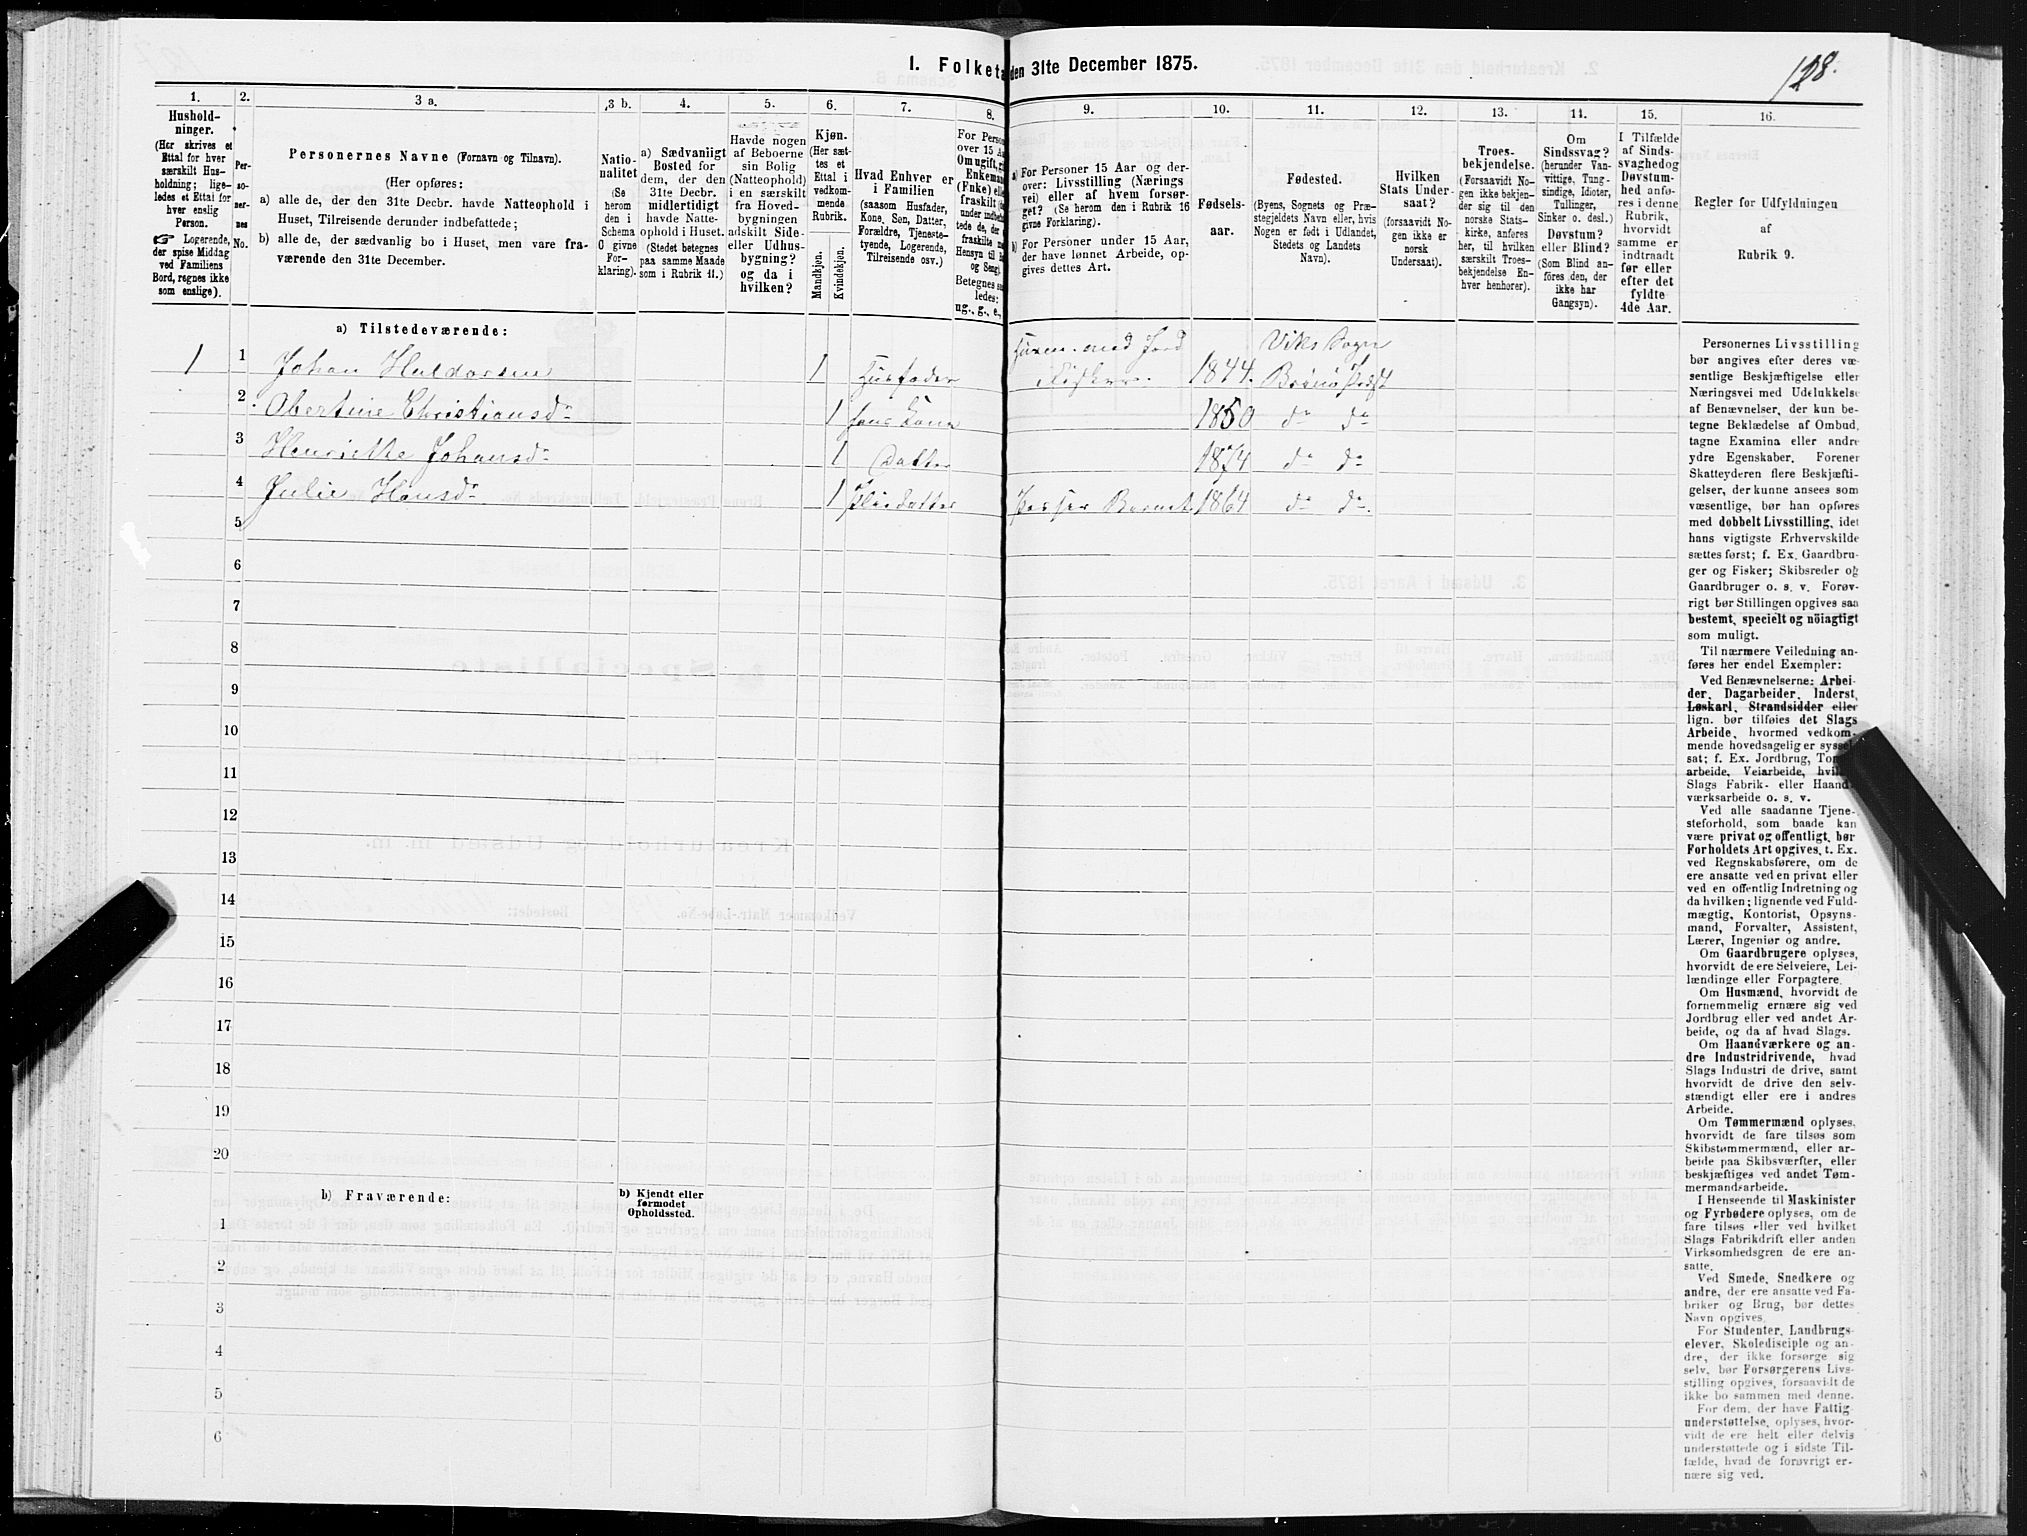 1. Folketæ
den 31te December 1875.
128.
1.
Hushold-
ninger.
(Her skrives et
Ettal for hver
særskilt Hus-
holdning; lige-
ledes et Ettal for
hver enslig
Person.
☞ Logerende,
der spise Middag
ved Familiens
Bord, regnes ikke
som enslige).
2.
Per-
so-
ner-
nes
No.
3 a.
Personernes Navne (Fornavn og Tilnavn).
(Her opføres:
a) alle de, der den 31te Decbr. havde Natteophold i
Huset, Tilreisende derunder indbefattede;
b) alle de, der sædvanlig bo i Huset, men vare fra-
værende den 31te December.
3 b.
Natio-
nalitet
(Se
herom
den i
Schema
C givne
For-
klaring).
4.
a) Sædvanligt
Bosted for
dem, der den
31te Decbr.
midlertidigt
havde Natte-
ophold i Huset.
(Stedet betegnes
paa samme Maade
som i Rubrik 11.)
5.
Havde nogen
af Beboerne
sin Bolig
(Natteophold)
i en særskilt
fra Hoved-
bygningen
adskilt Side-
eller Udhus-
bygning?
og da i
hvilken?
6.
Kjøn.
(Her sæt-
tes et
Ettal i
vedkom-
mende
Rubrik.
Mandkjøn.
Kvindekjøn.
7.
Hvad Enhver er
i Familien
(saasom Husfader,
Kone, Søn, Datter,
Forældre, Tjeneste-
tyende, Logerende,
Tilreisende osv.)
8.
For Person
over 15 Aa
Om ugift, g
Enkemæ
(Enke) elle
fraskilt
under indbe
tede de, der
fraskilte
Hensyn til B
og Seng).
Betegnes saa
ledes:
ug., g., e.,
9.
a) For Personer 15 Aar og der-
over: Livsstilling (Nærings
vei) eller af hvem forsør-
get? (Se herom den i Rubrik 16
givne Forklaring).
b) For Personer under 15 Aar,
der have lønnet Arbeide, op-
gives dettes Art.
10.
Fødsels-
aar.
11.
Fødested.
(Byens, Sognets og Præ-
stegjeldets Navn eller, hvis
Nogen er født i Udlandet,
Stedets og Landets
Navn).
12.
Hvilken
Stats Under-
saat?
(forsaavidt No-
gen ikke er
norsk
Undersaat).
13.
Troes-
bekjendelse.
(Forsaavidt No-
gen ikke bekjen-
der sig til den
norske Stats-
kirke, anføres
her, til hvilken
særskilt Troes-
bekjendelse En-
hver henhører).
14.
Om
Sindssvag?
(herunder Van-
vittige, Tung-
sindige, Idioter,
Tullinger,
Sinker o. desl.)
Døvstum?
eller Blind?
(Som Blind an-
føres den, der
ikke har
Gangsyn).
15.
I Tilfælde
af Sinds-
svaghed og
Døvstum-
hed anfø-
res i denne
Rubrik,
hvorvidt
samme er
indtraadt
før eller
efter det
fyldte
4de Aar.
16.
Regler for Udfyldningen
af
Rubrik 9.
a) Tilstedeværende:
1 1 Johan Haldorsen 1 Husfader Husm. med Jord Fisker. 1844. Viks Sogn Brønø Præst
2 Obertine Christiansdr 1 hans Kone 1850 do do
3 Henriette Johansdr 1 Datter 1874 do do
4 Julie Hansdr 1 Pleiedatter Passer Barnet. 1864 do do.
5
6
7
8
9
10
11
12
13
14
15
16
17
18
19
20
b) Fraværende:
b) Kjendt eller
formodet
Opholdssted.
1
2
3
4
5
6
Personernes Livsstilling
bør angives efter deres væ-
sentlige Beskjæftigelse eller
Næringsvei med Udelukkelse
af Benævnelser, der kun be-
tegne Beklædelse af Ombud,
tagne Examina eller andre
ydre Egenskaber. Forener
Skatteyderen flere Beskjæfti-
gelser, der kunne ansees som
væsentlige, bør han opføres
med dobbelt Livsstilling, idet
hans vigtigste Erhvervskilde
sættes først; f. Ex. Gaardbru-
ger og Fisker; Skibsreder og
Gaardbruger o. s. v. Forøv-
rigt bør Stillingen opgives saa
bestemt, specielt og nöiagtigt
som muligt.
Til nærmere Veiledning an-
føres her endel Exempler:
Ved Benævnelserne: Arbei-
der, Dagarbeider, Inderst,
Løskarl, Strandsidder eller
lign. bør tilføies det Slags
Arbeide, hvormed vedkom-
mende hovedsagelig er syssel
sat; f. Ex. Jordbrug, Tom
arbeide, Veiarbeide, hvil
Slags Fabrik- eller Haand-
værksarbeide o. s. v.
Ved alle saadanne Tjene-
steforhold, som baade kan
være privat og offentligt, bør
Forholdets Art opgives, t. Ex.
ved Regnskabsførere, om de
ere ansatte ved en privat eller
ved en offentlig Indretning og
da hvilken; lignende ved Fuld-
mægtig, Kontorist, Opsyns-
mand, Forvalter, Assistent,
Lærer, Ingeniør og andre.
Om Gaardbrugere oplyses,
hvorvidt de ere Selveiere, Lei-
lændinge eller Forpagtere.
Om Husmænd, hvorvidt de
fornemmelig ernære sig ved
Jordbrug eller ved andet Ar-
beide, og da af hvad Slags.
Om Haandværkere og an-
dre Industridrivende, hvad
Slags Industri de drive, samt
hvorvidt de drive den selv-
stændigt eller ere i andres
Arbeide.
Om Tømmermænd oplyses,
hvorvidt de fare tilsøs som
Skibstømmermænd, eller ar-
beide paa Skibsværfter, eller
beskjæftiges ved andet Tøm-
mermandsarbeide.
I Henseende til Maskinister
og Fyrbødere oplyses, om de
fare tilsøs eller ved hvilket
Slags Fabrikdrift eller anden
Virksomhedsgren de ere an-
satte.
Ved Smede, Snedkere og
andre, der ere ansatte ved Fa-
briker og Brug, bør dettes
Navn opgives.
For Studenter, Landbrugs-
elever, Skoledisciple og an-
dre, der ikke forsørge sig
selv, bør Forsørgerens Livs-
stilling opgives, forsaavidt de
ikke bo sammen med denne.
For dem, der have Fattig-
understøttelse, oplyses, hvor-
vidt de ere helt eller delvis
understøttede og i sidste Til-
fælde, hvad de forøvrigt er-
nære sig ved.